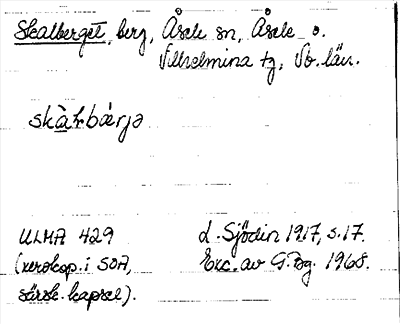 Skalberget, berg, Åsele sn, Åsele o.
Vilhelmina tg, Vb. län.
skàḷbærjə
ULMA 429
(xerokop. i SOA,
särsk. kapsel).
L. Sjödin 1917, s. 17.
Exc. av G. Bg. 1968.